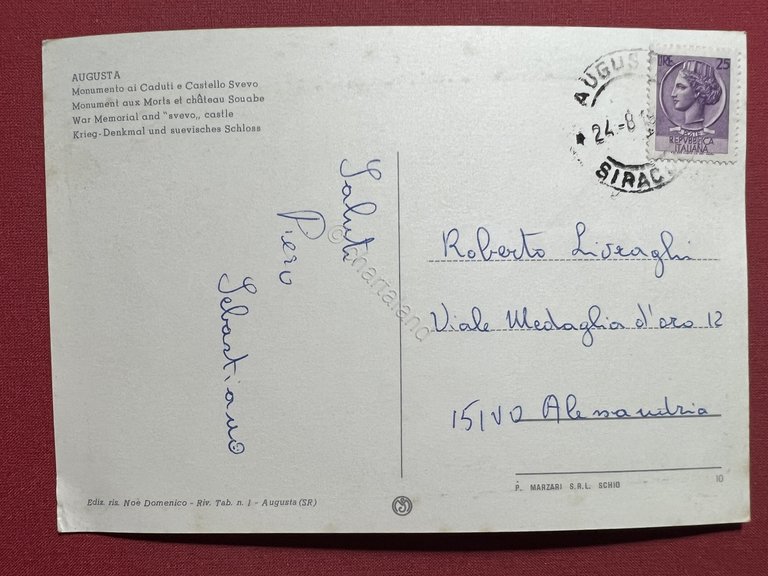 AUGUSTA
Monumento ai Caduti e Castello Svevo
Monument aux Morts et château Souabe
War Memorial and "svevo„ castle
Krieg-Denkmal und suevisches Schloss
LIRE 25
POSTE
REPVBBLICA
ITALIANA
24-8
Saluti
Piero
Sebastiano
© Chartaland
Roberto Livraghi
Viale Medaglia d'oro 12
15100 Alessandria
Ediz. ris. Noè Domenico - Riv. Tab. n. 1 - Augusta (SR)
P. MARZARI S.R.L. SCHIO
10